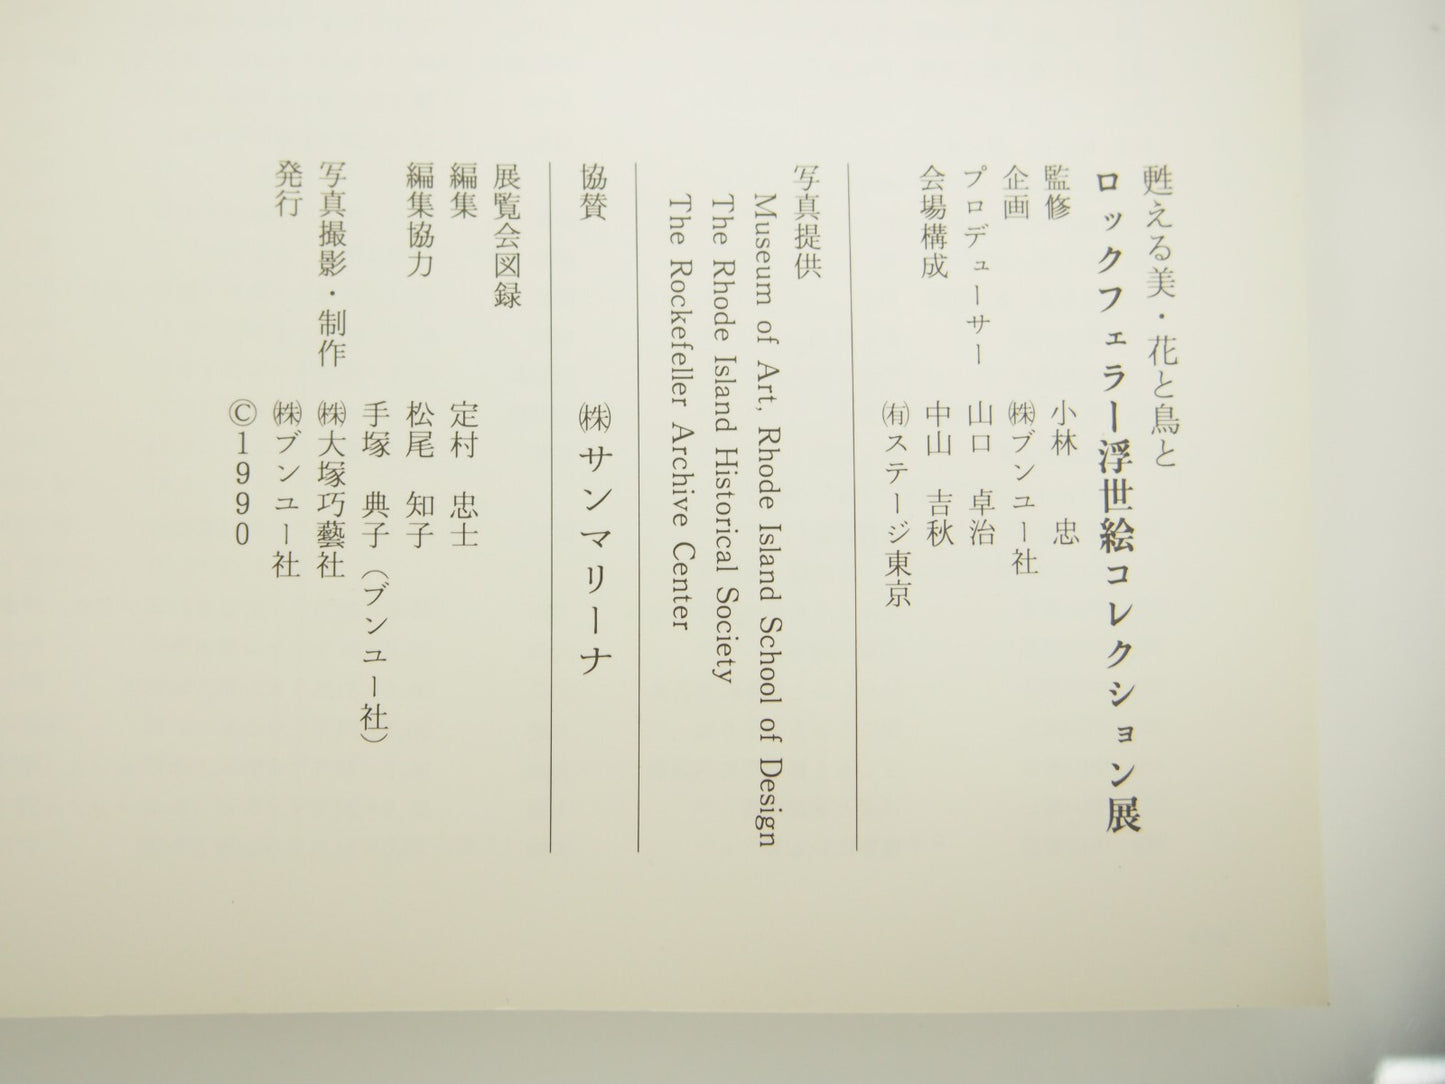 甦える美・花と鳥と
ロックフェラー浮世絵コレクション展
監修 小林 忠
企画 ㈱ブンユー社
プロデューサー 山口 卓治
会場構成 中山 吉秋
㈲ステージ東京
写真提供
Museum of Art, Rhode Island School of Design
The Rhode Island Historical Society
The Rockefeller Archive Center
協賛 ㈱サンマリーナ
展覧会図録
編集 定村 忠士
編集協力 松尾 知子
手塚 典子（ブンユー社）
写真撮影・制作 ㈱大塚巧藝社
発行 ㈱ブンユー社
©1990